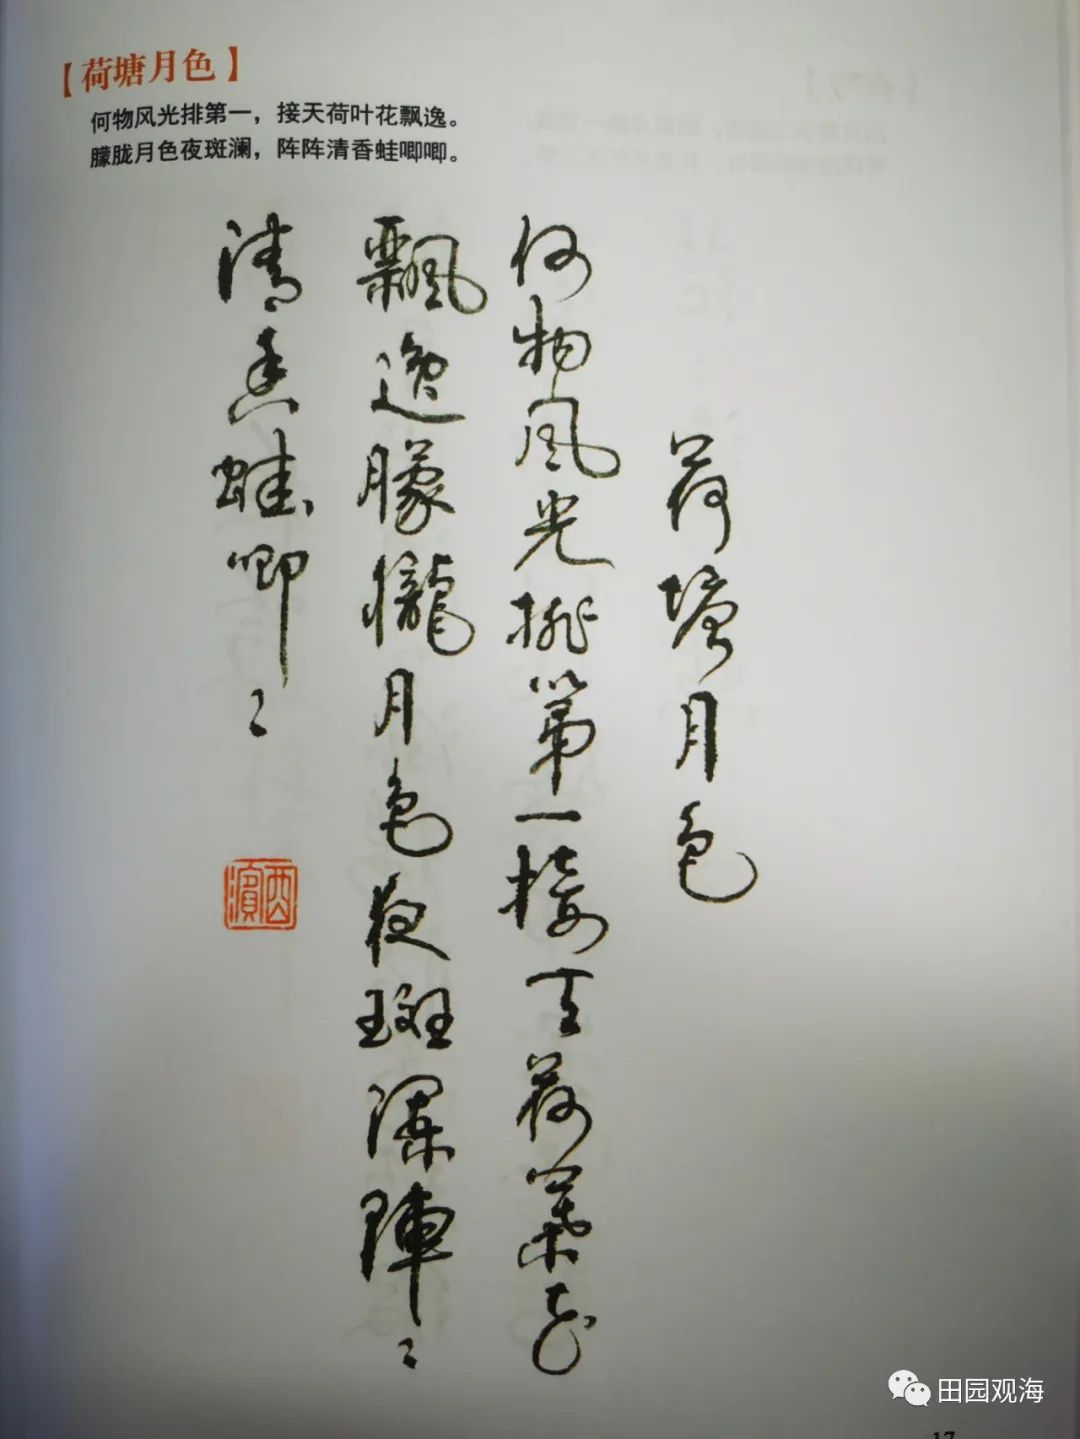 【荷塘月色】
何物风光排第一，接天荷叶花飘逸。
朦胧月色夜斑澜，阵阵清香蛙唧唧。
荷塘月色
何物风光排第一接天荷葉花
飄逸朦朧月色夜斑澜陣〻
清香蛙唧〻
西濱
田园观海
17